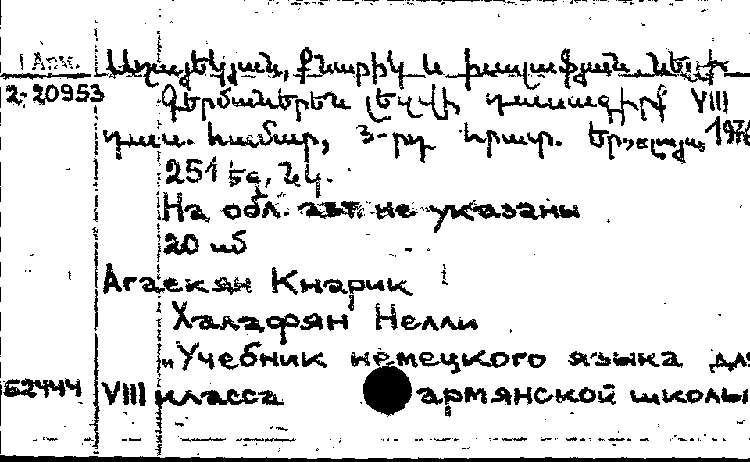 Арм. Աղաջեկյան, Քնարիկ և Խալաֆյան, Նելլի
2-20953 Գերմաներեն լեզվի դասագիրք VIII
դաս. համար, 3-րդ հրատ. Եր.,
251 էջ, նկ.
На обл. авт. не указаны
20 
Агаекян Кнарик
Халафян Нелли
„Учебник немецкого языка для
52444 VIII класса армянской школы